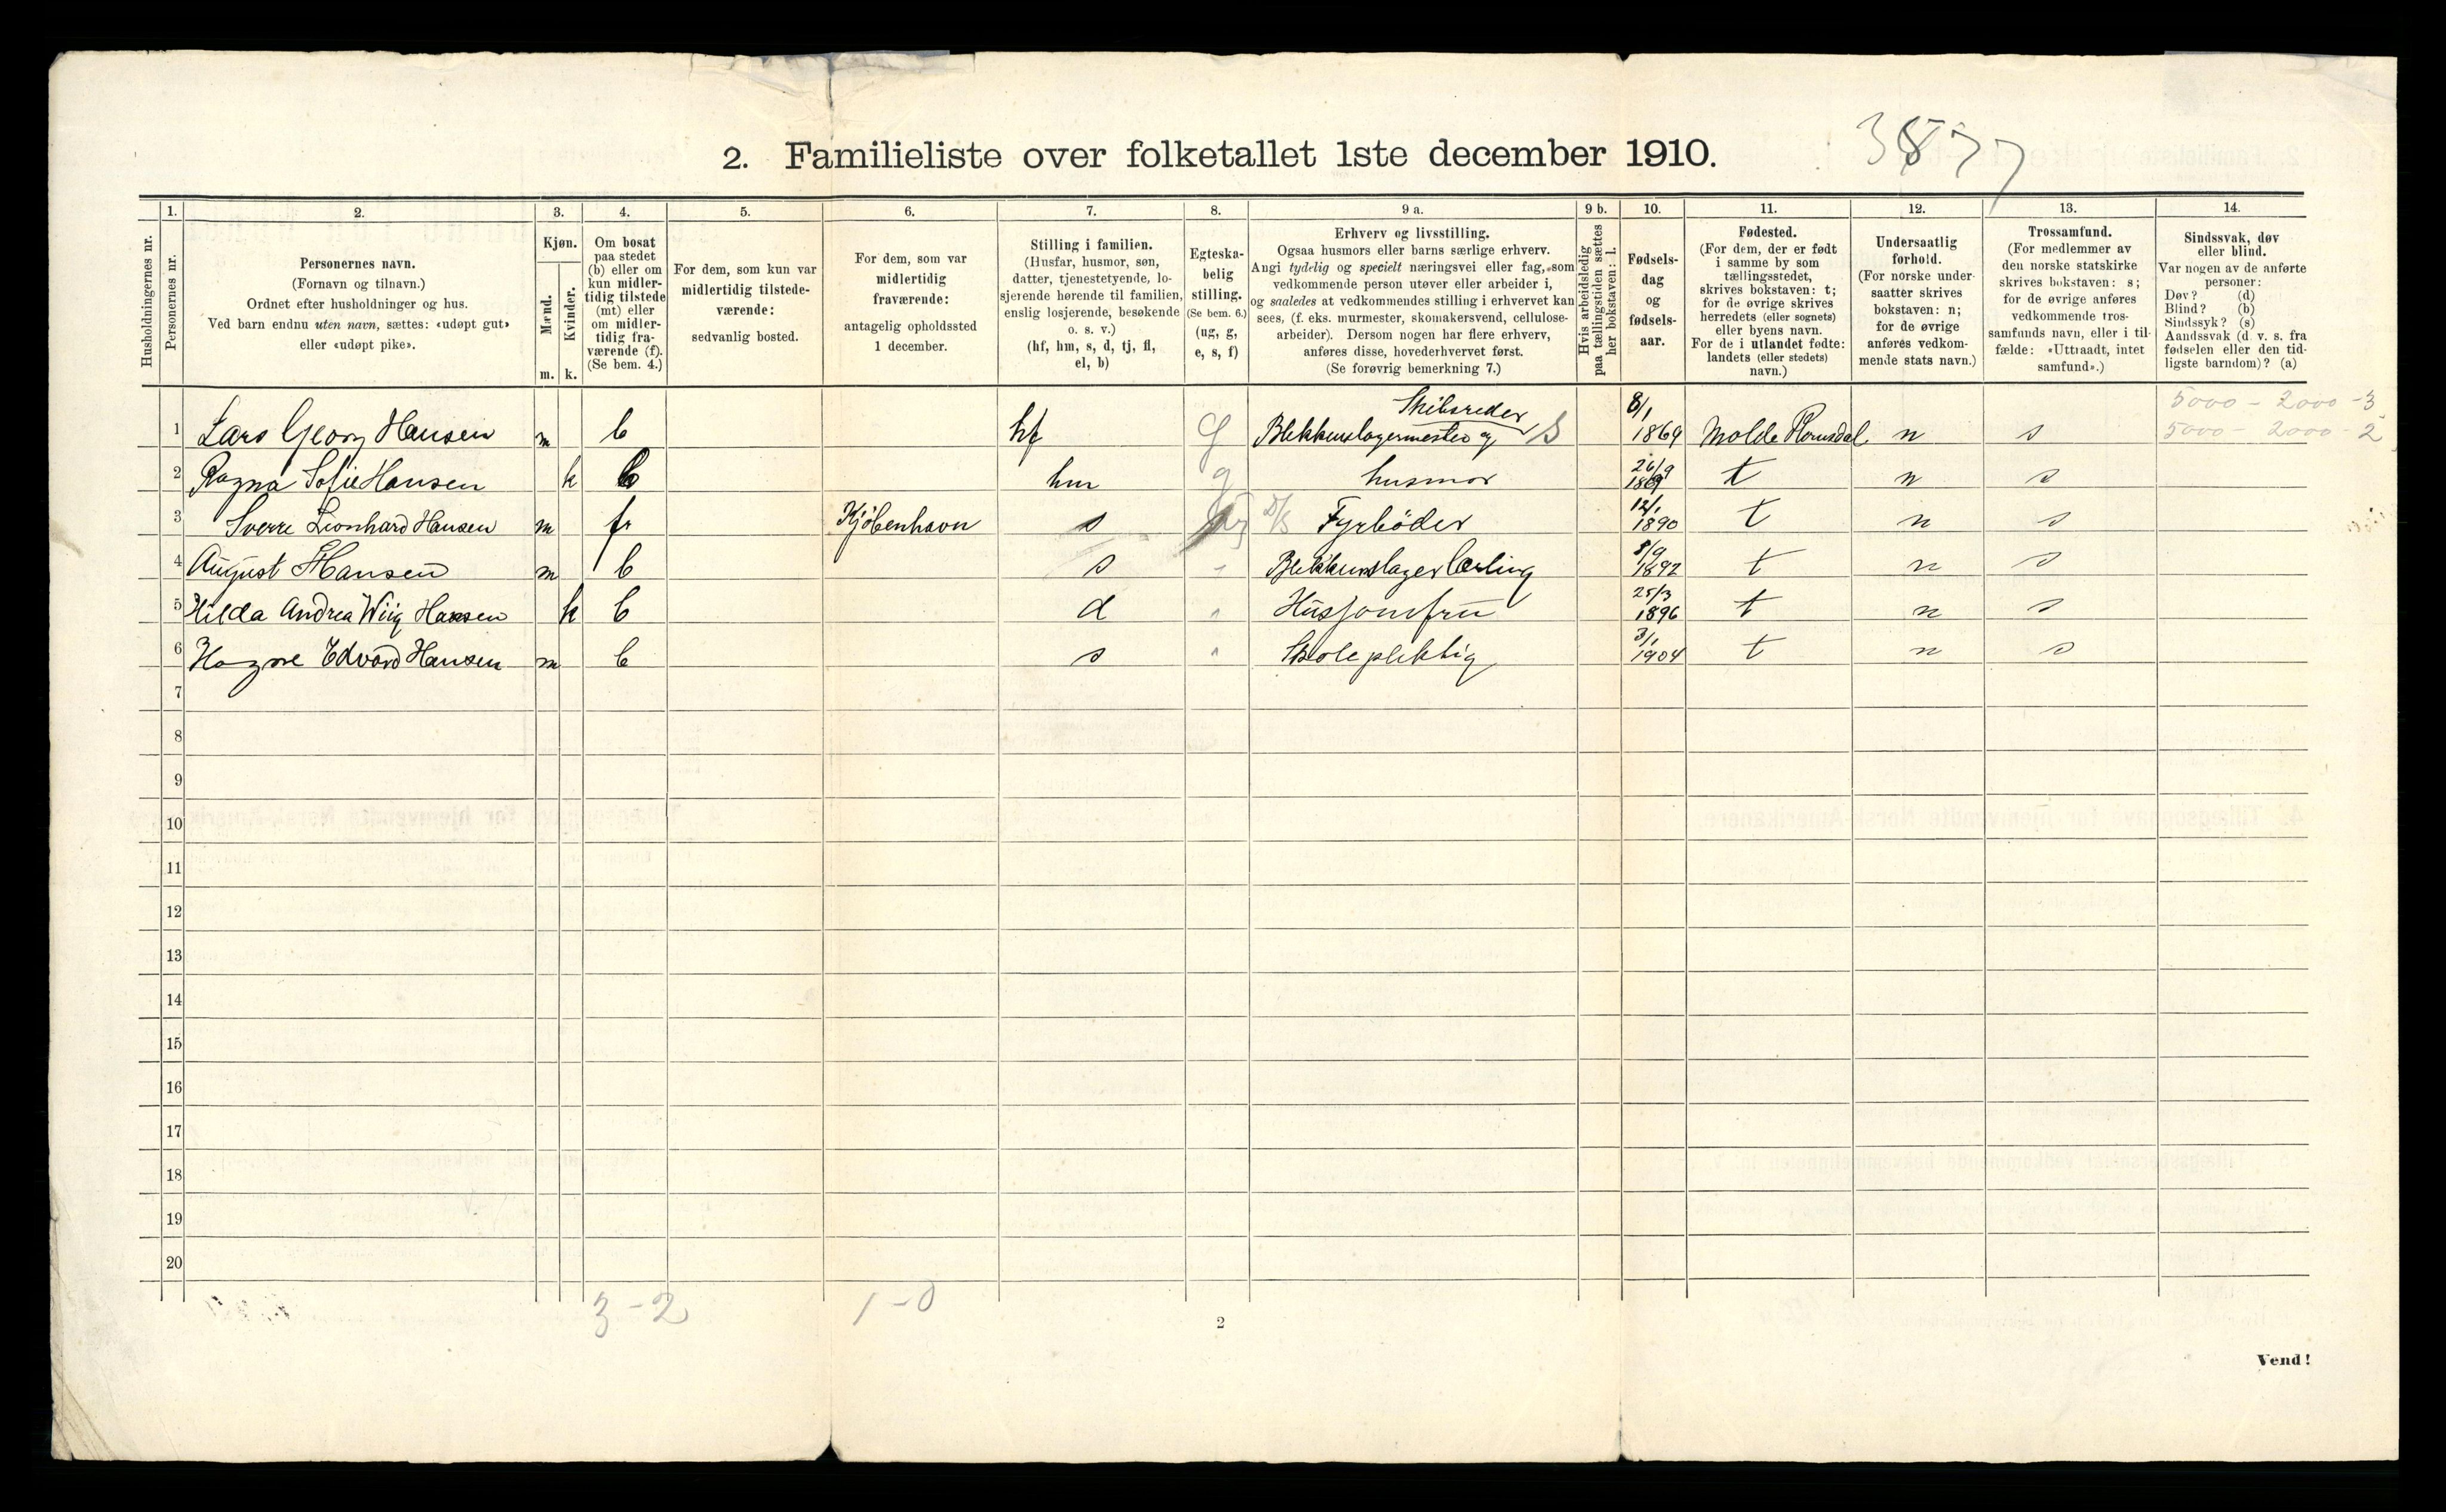 2. Familieliste over folketallet 1ste december 1910.
3877
Husholdningernes nr.
1.
Personernes nr.
2.
Personernes navn.
(Fornavn og tilnavn.)
Ordnet efter husholdninger og hus.
Ved barn endnu uten navn, sættes: «udøpt gut»
eller «udøpt pike».
3.
Kjøn.
Mænd.
Kvinder.
m. k.
4.
Om bosat
paa stedet
(b) eller om
kun midler-
tidig tilstede
(mt) eller
om midler-
tidig fra-
værende (f).
(Se bem. 4.)
5.
For dem, som kun var
midlertidig tilstede-
værende:
sedvanlig bosted.
6.
For dem, som var
midlertidig
fraværende:
antagelig opholdssted
1 december.
7.
Stilling i familien.
(Husfar, husmor, søn,
datter, tjenestetyende, lo-
sjerende hørende til familien,
enslig losjerende, besøkende
o. s. v.)
(hf, hm, s, d, tj, fl,
el, b)
8.
Egteska-
belig
stilling.
(Se bem. 6.)
(ug, g,
e, s, f)
9 a.
Erhverv og livsstilling.
Ogsaa husmors eller barns særlige erhverv.
Angi tydelig og specielt næringsvei eller fag, som
vedkommende person utøver eller arbeider i,
og saaledes at vedkommendes stilling i erhvervet kan
sees, (f. eks. murmester, skomakersvend, cellulose-
arbeider). Dersom nogen har flere erhverv,
anføres disse, hovederhvervet først.
(Se forøvrig bemerkning 7.)
9 b.
Hvis arbeidsledig
paa tællingstiden sættes
her bokstaven: l.
10.
Fødsels-
dag
og
fødsels-
aar.
11.
Fødested.
(For dem, der er født
i samme by som
tællingsstedet,
skrives bokstaven: t;
for de øvrige skrives
herredets (eller sognets)
eller byens navn.
For de i utlandet fødte:
landets (eller stedets)
navn.)
12.
Undersaatlig
forhold.
(For norske under-
saatter skrives
bokstaven: n;
for de øvrige
anføres vedkom-
mende stats navn.)
13.
Trossamfund.
(For medlemmer av
den norske statskirke
skrives bokstaven: s;
for de øvrige anføres
vedkommende tros-
samfunds navn, eller i til-
fælde: «Uttraadt, intet
samfund».)
14.
Sindssvak, døv
eller blind.
Var nogen av de anførte
personer:
Døv? (d)
Blind? (b)
Sindssyk? (s)
Aandssvak (d. v. s. fra
fødselen eller den tid-
ligste barndom)? (a)
Skibsreder 8/1 5000 - 2000 - 3
1 Lars Georg Hansen m b hf g Blikkenslagermester og S 1869 Molde Romsdal n s 5000 2000 - 2
2 Ragna Sofie Hansen k b hm g husmor 26/9 1869 t n s
3 Sverre Leonhard Hansen m fr Kjøbenhavn s ug D/S Fyrbøder 12/1 1890 t n s
4 August Hansen m b s - Blikkenslager Lærling 5/9 1892 t n s
5 Hilda Andrea Wiig Hansen k b d " Husjomfru 25/3 1896 t n s
6 Hagne Edvard Hansen m b s " Skolepliktig 3/1 1904 t n s
7
8
9
10
11
12
13
14
15
16
17
18
19
20
3 - 2 1 - 0
2
Vend!